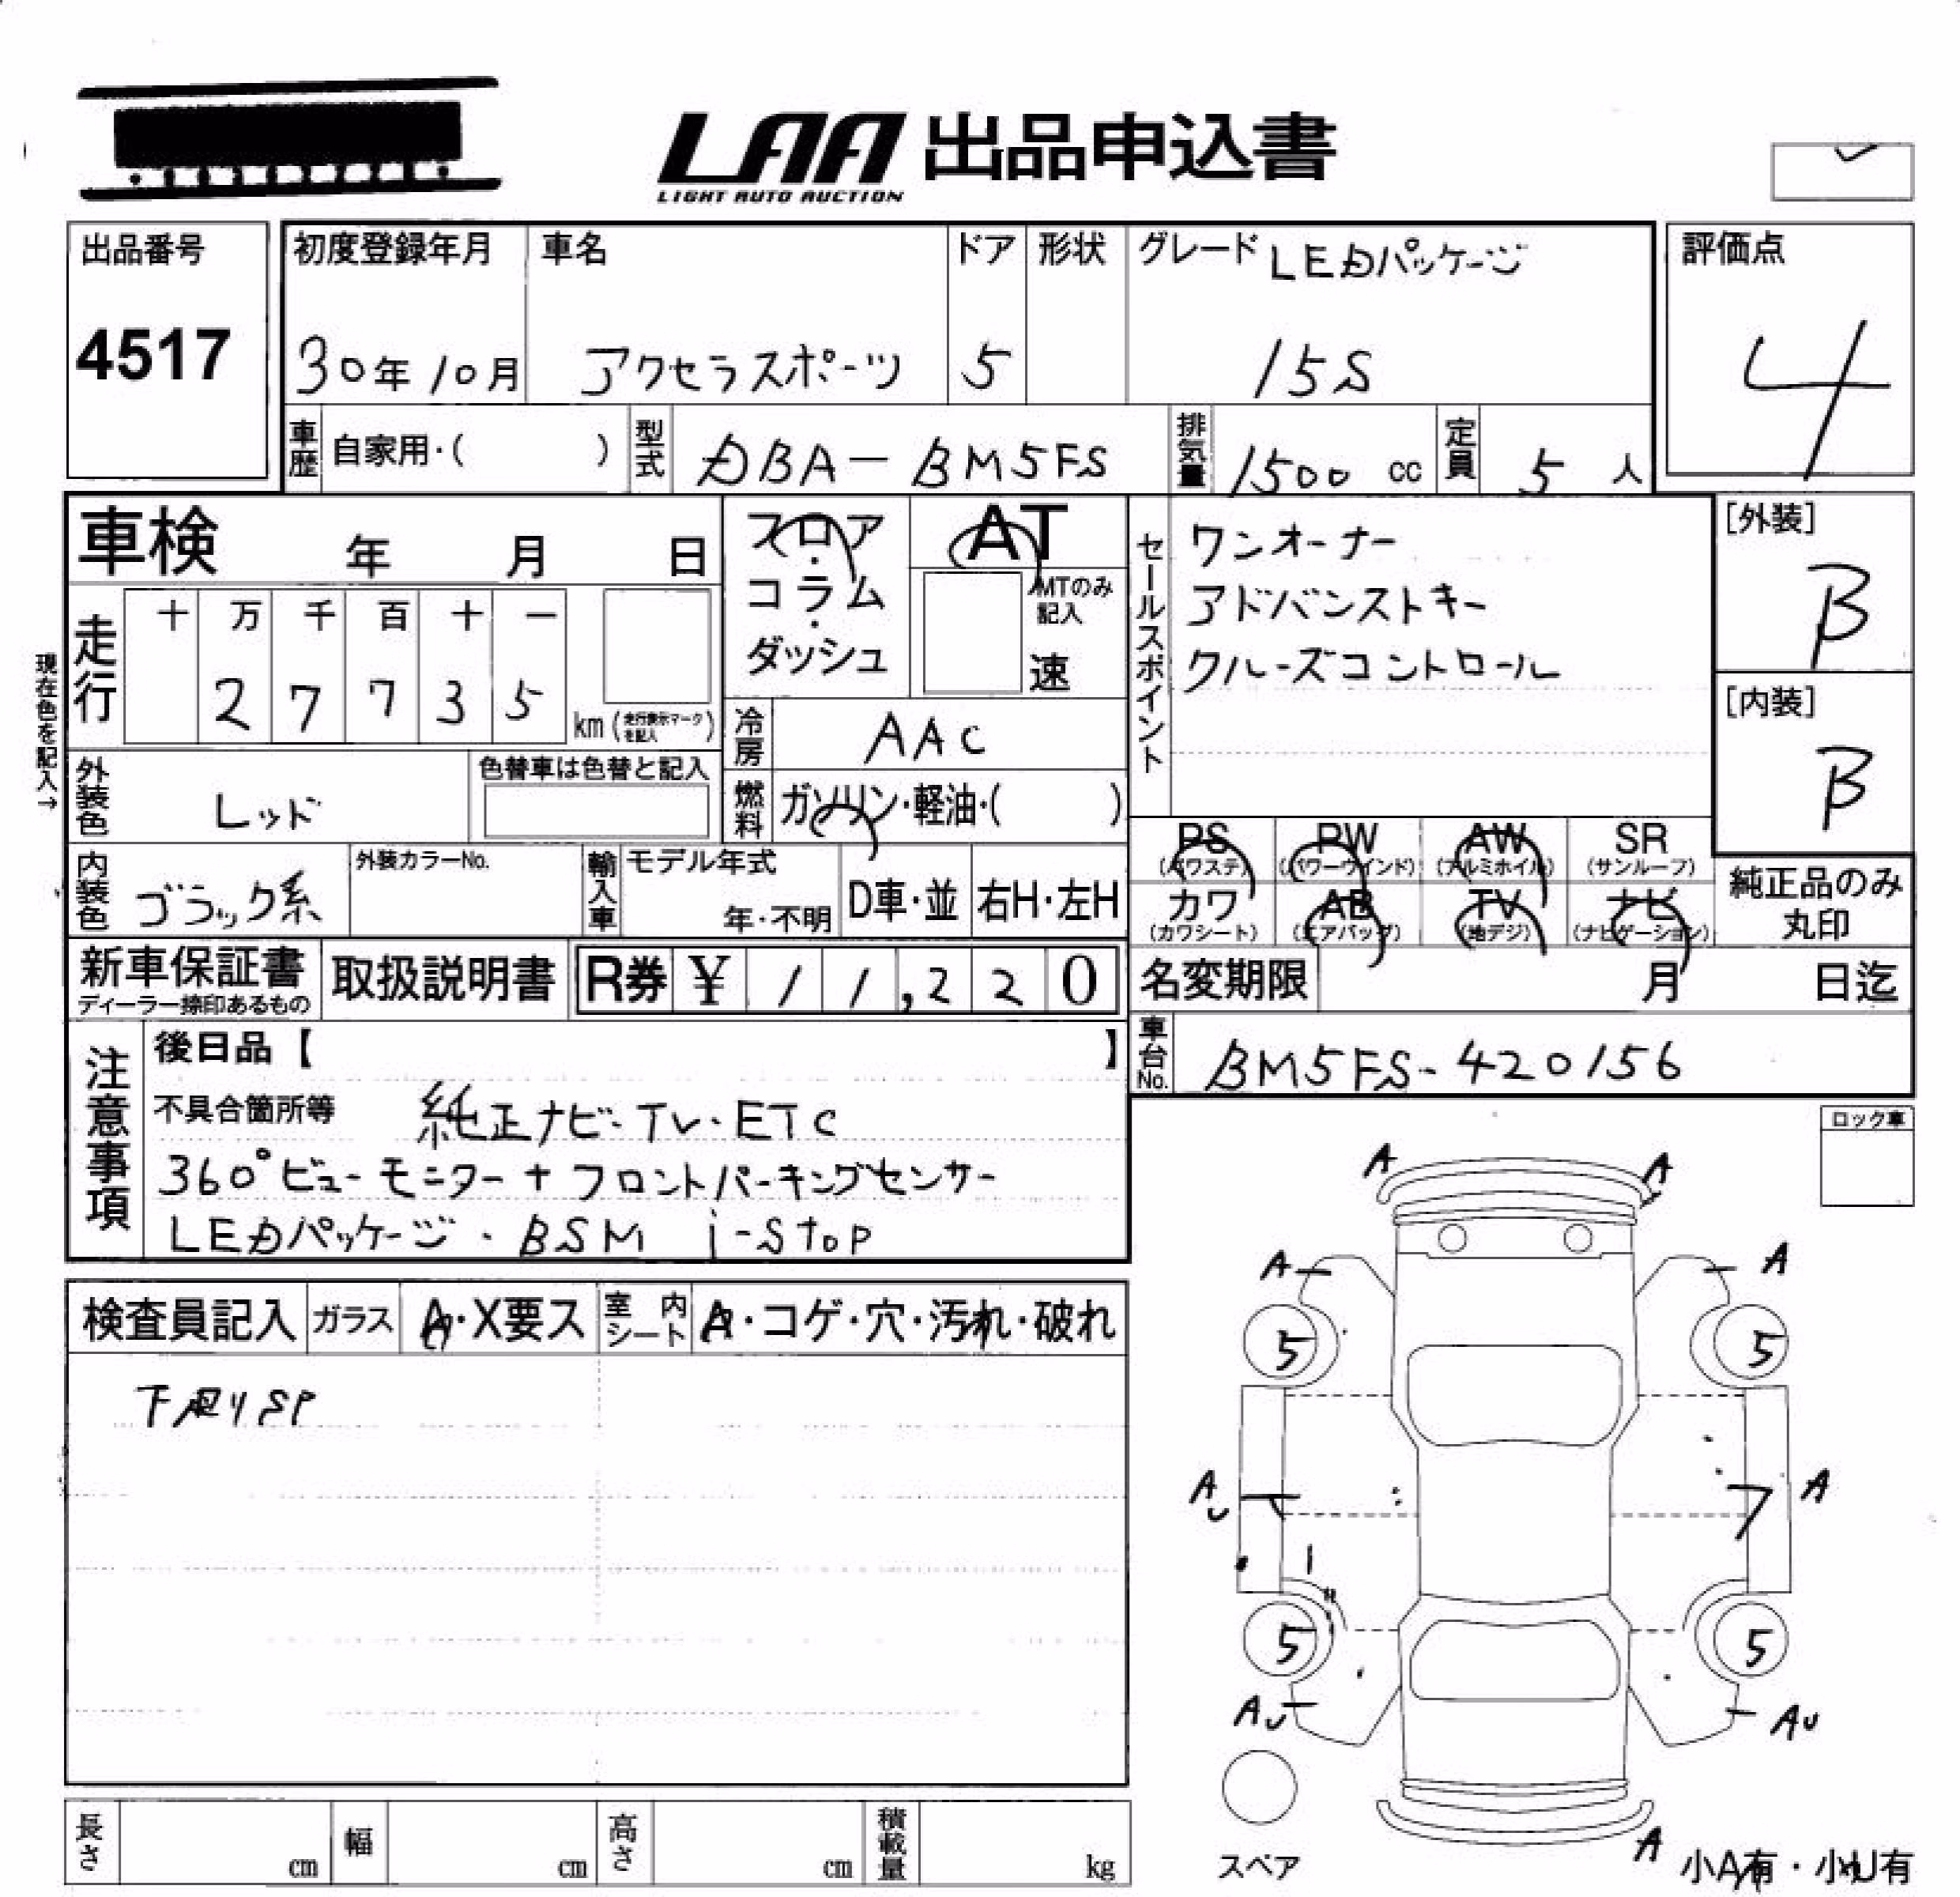 LAA 出品申込書
LIGHT AUTO AUCTION
出品番号
4517
初度登録年月
30年10月
車名
アクセラスポーツ
ドア
5
形状
グレード LEDパッケージ
15S
評価点
4
車歴 自家用・( )
型式 DBA-BM5FS
排気量 1500 cc
定員 5 人
車検 年 月 日
フロア・コラム・ダッシュ
AT
MTのみ記入
速
セールスポイント
ワンオーナー
アドバンストキー
クルーズコントロール
[外装]
B
[内装]
B
現在色を記入→
走行
十 万 千 百 十 一
2 7 7 3 5
km (走行表示マークを記入)
冷房 AAC
外装色 レッド
色替車は色替と記入
燃料 ガソリン・軽油・( )
内装色 ブラック系
外装カラーNo.
輸入車
モデル年式
年・不明
D車・並
右H・左H
PS (パワステ)
PW (パワーウインド)
AW (アルミホイル)
SR (サンルーフ)
カワ (カワシート)
AB (エアバッグ)
TV (地デジ)
ナビ (ナビゲーション)
純正品のみ丸印
新車保証書
ディーラー捺印あるもの
取扱説明書
R券 ¥ 11,220
名変期限 月 日迄
車台No. BM5FS-420156
注意事項
後日品【 】
不具合箇所等 純正ナビ・TV・ETC
360°ビューモニター+フロントパーキングセンサー
LEDパッケージ・BSM i-stop
ロック車
検査員記入
ガラス A・X要ス
室内シート A・コゲ・穴・汚れ・破れ
下回りSP
A A
A A
5 5
AU A
5 5
AU AU
スペア
A
小A有・小U有
長さ cm
幅 cm
高さ cm
積載量 kg